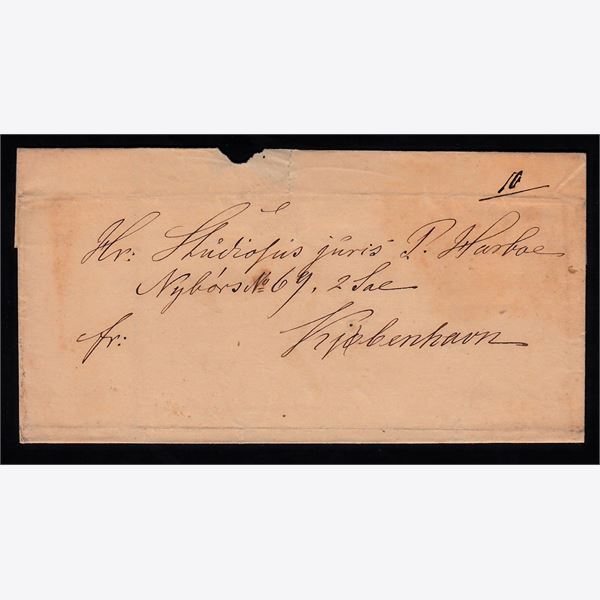 10
Hr: Studiosus juris P. Harboe
Nybörs № 69, 2 Sae
fr: Kjøbenhavn